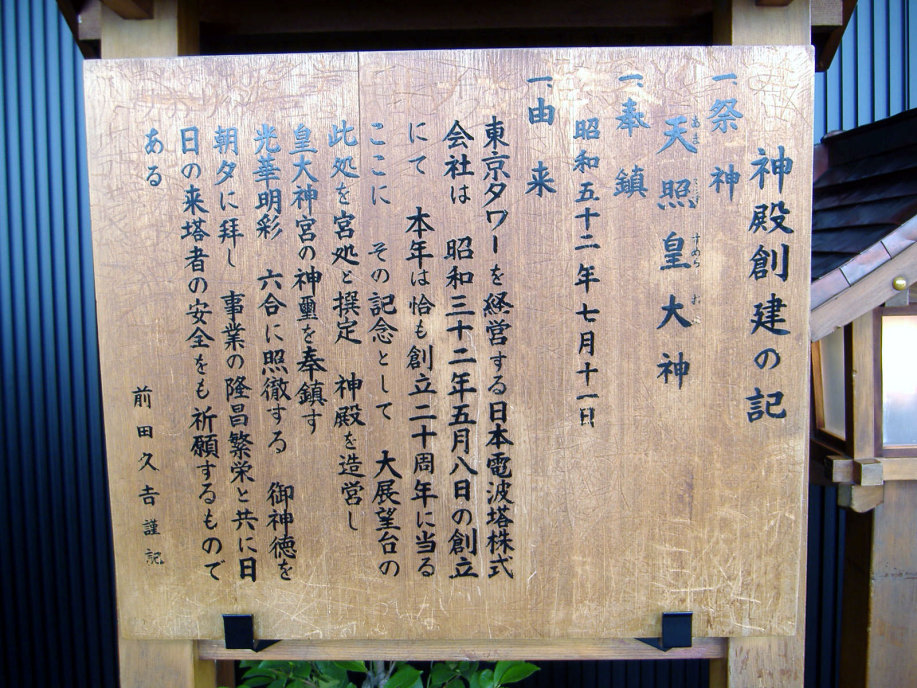 神殿創建の記
一、祭神
天照皇大神
あま てらす すめら お
一、奉鎮
昭和五十二年七月十一日
一、由来
東京タワーを経営する日本電波塔株式
会社は 昭和三十二年五月八日の創立
にて 本年は恰も創立二十周年に当る
ここに その記念として 大展望台の
此処を宮処と撰定 神殿を造営し
皇大神宮の神璽を奉鎮す
光華明彩 六合に照徹する 御神徳を
朝夕に拝し 事業の隆昌繁栄と共に日
日の来塔者の安全をも祈願するもので
ある
前田久吉謹記